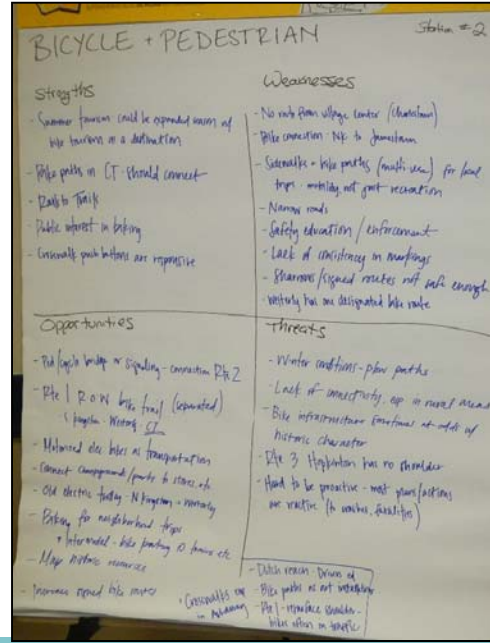 BICYCLE + PEDESTRIAN
Station #2
Strengths
- Summer tourism could be expanded
bike tourism as a destination
- Bike paths in CT - should connect
- Rails to Trails
- Public interest in biking
- Crosswalk push buttons are responsive
Weaknesses
- No route from village center (Charlestown)
- Bike connection - NK to Jamestown
- Sidewalks + bike paths (multi-use) for local
trips - mobility, not just recreation
- Narrow roads
- Safety education / enforcement
- Lack of consistency in markings
- Sharrows/signed routes not safe enough
- Westerly has one designated bike route
Opportunities
- Ped/cycle bridge or signaling - connection Rte 2
- Rte 1 ROW bike trail (separated)
Kingston - Westerly - CT
- Motorized elec bikes as transportation
- Connect campgrounds/parks to stores, etc
- Old electric trolley - N Kingston - Westerly
- Biking for neighborhood trips
+ Intermodal - bike parking @ trains etc
- Map historic resources
- Increase signed bike routes
+ Crosswalks
in
Threats
- Winter conditions - plow paths
- Lack of connectivity, esp in rural areas
- Bike infrastructure sometimes at odds w/
historic character
- Rte 3 Hopkinton has no shoulder
- Hard to be proactive - most plans/actions
are reactive (to crashes, fatalities)
- Dutch reach - Driver ed
- Bike paths as not
- Rte 1 - shoulder -
bikes often in traffic